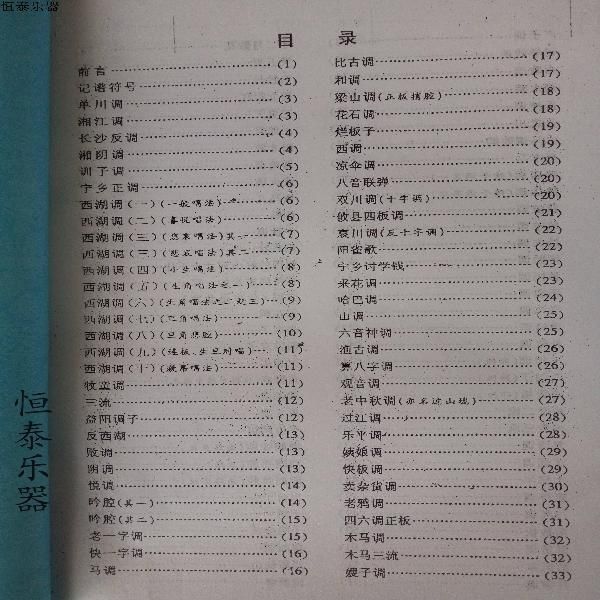 恒泰乐器
目 录
前言(1)
记谱符号(2)
单川调(3)
湘江调(3)
长沙反调(4)
湘阴调(4)
训子调(5)
宁乡正调(6)
西湖调(一)(一般唱法)(6)
西湖调(二)(喜悦唱法)(6)
西湖调(三)(悲哀唱法)其一(7)
西湖调(三)(悲哀唱法)其二(7)
西湖调(四)(小生唱法)(8)
西湖调(五)(生角唱法之一)(8)
西湖调(六)(生角唱法之二及三)(9)
西湖调(七)(丑角唱法)(9)
西湖调(八)(旦角悲腔)(10)
西湖调(九)(生旦对唱)(11)
西湖调(十)(唱法)(11)
牧童调(11)
三流(12)
益阳调子(12)
反西湖(13)
败调(13)
阴调(13)
悦调(14)
吟腔(其一)(14)
吟腔(其二)(15)
老一字调(15)
快一字调(16)
马调(16)
比古调(17)
和调(17)
梁山调(正板梢腔)(18)
花石调(18)
烂板子(19)
西调(19)
凉伞调(20)
八音联弹(20)
双川调(十字调)(20)
攸县四板调(21)
衰川调(反十字调)(22)
阳雀歌(22)
宁乡讨学钱(23)
采花调(23)
哈巴调(24)
山调(25)
六音神调(25)
渔古调(26)
算八字调(26)
观音调(27)
老中秋调(亦名过山垅)(27)
过江调(28)
乐平调(28)
姨娘调(29)
快板调(29)
卖杂货调(30)
老鸦调(31)
四六调正板(31)
木马调(32)
木马三流(32)
嫂子调(33)
恒泰乐器